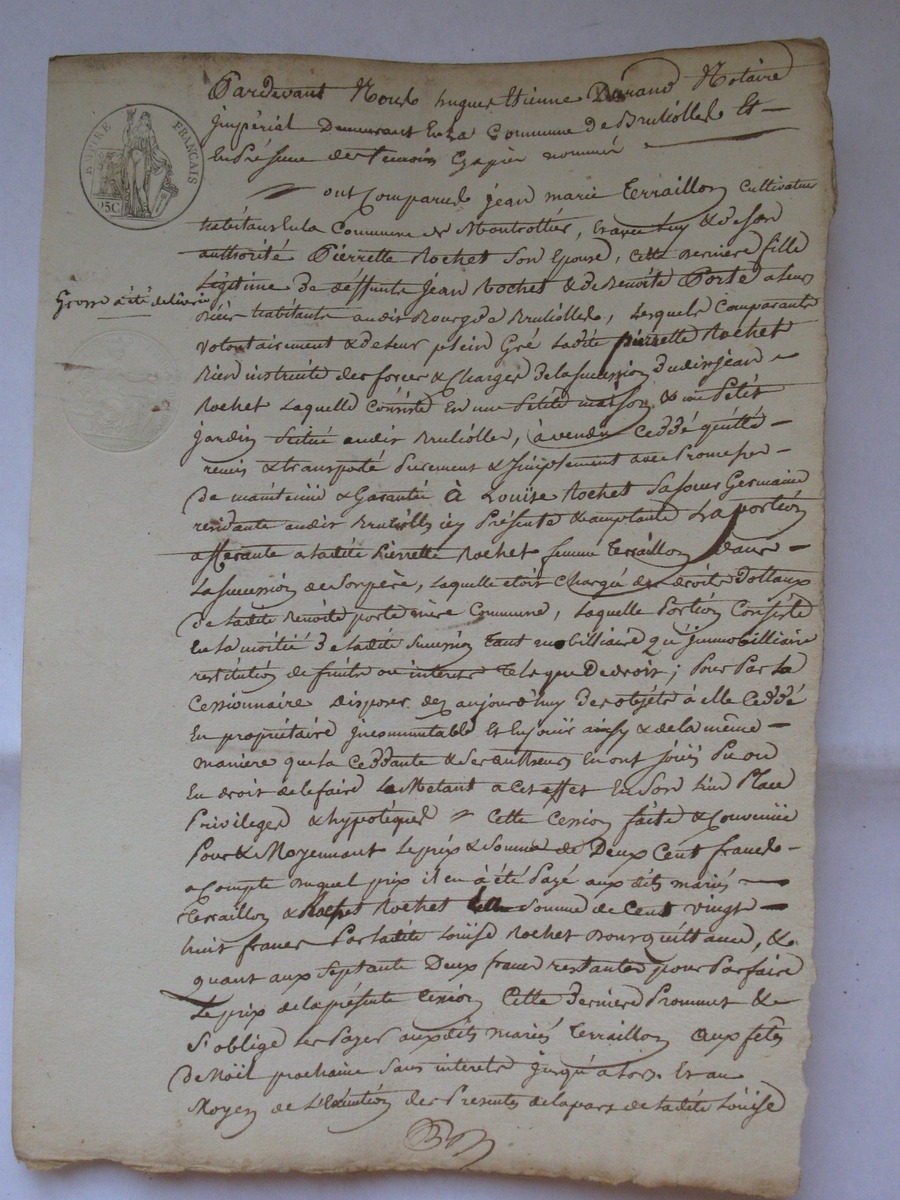 Pardevant Nous hugues Etienne Durand Notaire
Jmpérial Demeurant En La Commune de Brulliolles Et
En Présence des temoins Cy apres nommés
EMPIRE FRANÇAIS
25C
ont Comparus jean marie Terraillon Cultivateur
habitant En la Commune de Montrottier, & avec luy & de son
authorité Pierrette Rochet Son Epouse, cette derniere fille
Légitime de deffunts Jean Rochet & de Benoite Porte a Leurs
Grosse a été delivrée
Décès habitants audit Bourg de Brulliolles, Lesquels Comparants
volontairement & de Leur plein Gré Ladite pierrette Rochet
Bien instruite des forces & Charges de la succession dudit jean
Rochet Laquelle Consiste En une Petite maison & un Petit
jardin Situé audit Brulliolles, à vendu Ceddé quitté
remis & transporté Purement & Simplement avec Promesse
De maintenir & Garantir à Louise Rochet Sa sœur Germaine
residante audit Brulliolles icy Présente & acceptante La portion
afferante a ladite Pierrette Rochet femme Terraillon Dans
La succession de Son père, Laquelle étoit Chargé des droits dottaux
de Ladite Benoite porte mère Commune, Laquelle Portion Consiste
En la moitié de Ladite Succession tant mobilliaire qu'jmmobilliaire
restitution de fruits ou interets tels que De droit; Pour Par La
Cessionnaire disposer dez aujourd'huy des objets à elle Ceddé
En propriétaire jncommutable Et En jouir ainsy & de la même
maniere que la Ceddante & Ses autheurs En ont jouis Pu ou
En droit de le faire La Metant a Cet effet En Son Lieu Place
Privileges & hypotèques Cette Cession faite & Convenüe
Pour & Moyennant Le prix & Somme de Deux Cent francs
a Compte duquel prix il en à été Payé aux dits mariés
Terraillon & Rochet La Somme de Cent vingt
huit francs Par Ladite Loüise Rochet Dont quittance, &
quant aux Septante Deux francs restantes pour Parfaire
Le prix de la présente Cession Cette Derniere Prommet &
S'oblige Les Payer auxdits mariés Terraillon aux fêtes
De Noël prochaine Sans interets jusqu'a Lors Et au
Moyen de L'Exécution des Presentes de la part de Ladite Loüise